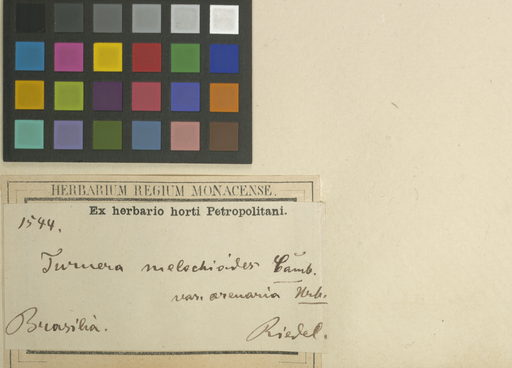 HERBARIUM REGIUM MONACENSE.
Ex herbario horti Petropolitani.
1544.
Turnera melochioides Camb.
var. arenaria Urb.
Brasilia. Riedel.